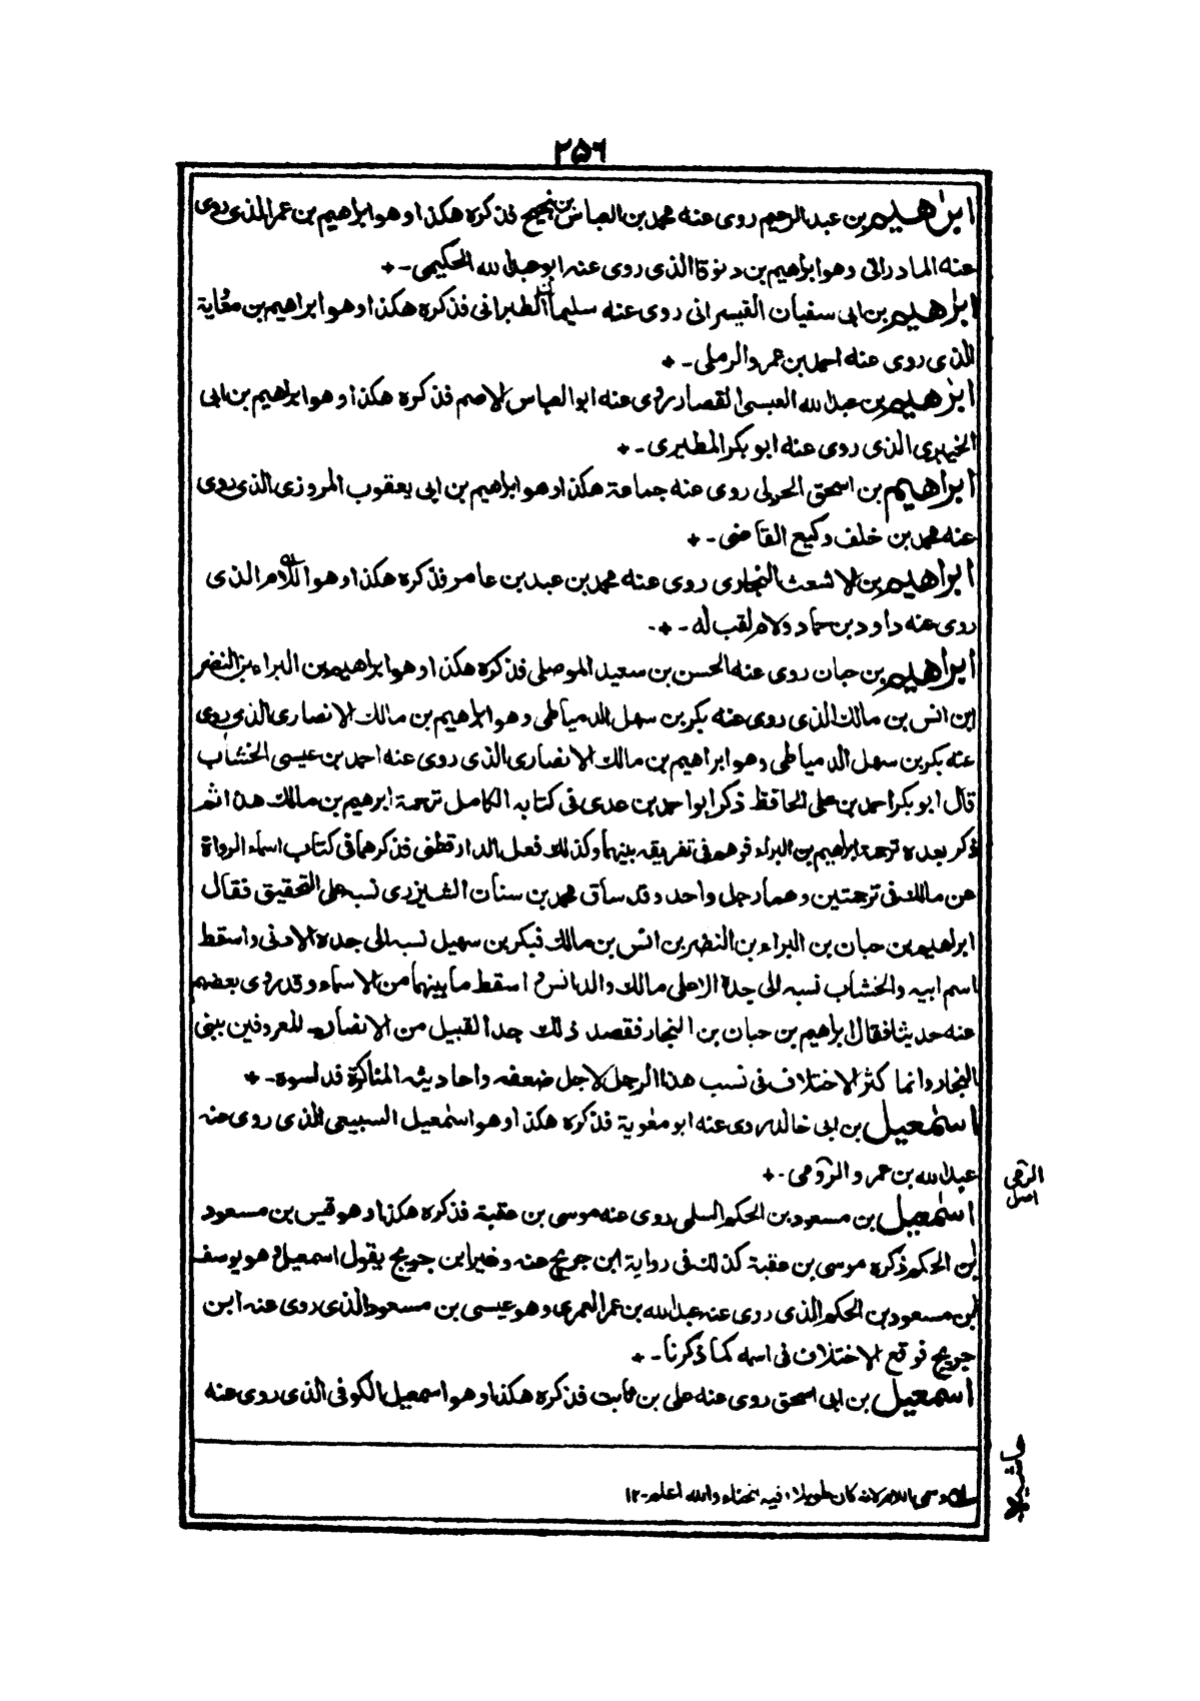 ٢٥٦
ابراهيم بن عبد الرحيم روى عنه محمد بن العباس بن نجيح فذكره هكذا وهو ابراهيم بن عمر الذى روى
عنه المادرائى وهو ابراهيم بن دنوقا الذى روى عنه ابو عبد الله الحكيمى -
ابراهيم بن ابى سفيان القيسرانى روى عنه سليمان الطبرانى فذكره هكذا وهو ابراهيم بن معٰوية
الذى روى عنه احمد بن عمرو الرملى -
ابرٰهيم بن عبد الله العبسى القصار روى عنه ابو العباس الاصم فذكره هكذا وهو ابراهيم بن ابى
الخيبرى الذى روى عنه ابو بكر المطيرى -
ابراهيم بن اسحق الحربى روى عنه جماعة هكذا وهو ابراهيم بن ابى يعقوب المروزى الذى روى
عنه محمد بن خلف وكيع القاضى -
ابراهيم بن الاشعث البخارى روى عنه محمد بن عبد بن عامر فذكره هكذا وهو اللام الذى
روى عنه داود بن حماد ولام لقب له -
ابراهيم بن حبان روى عنه الحسن بن سعيد الموصلى فذكره هكذا وهو ابراهيم بن البراء بن النضر
ابن انس بن مالك الذى روى عنه بكر بن سهل الدمياطى وهو ابراهيم بن مالك الانصارى الذى روى
عنه بكر بن سهل الدمياطى وهو ابراهيم بن مالك الانصارى الذى روى عنه احمد بن عيسى الخشاب
قال ابو بكر احمد بن على الحافظ ذكر ابو احمد بن عدى فى كتابه الكامل ترجمة ابرهيم بن مالك هذا ثم
ذكر بعده ترجمة ابراهيم بن البراء فوهم فى تفريقه بينهما وكذلك فعل الدارقطنى فذكرهما فى كتاب اسماء الرواة
عن مالك فى ترجمتين وهما رجل واحد وقد ساق محمد بن سنان الشيزرى نسبه على التحقيق فقال
ابراهيم بن حبان بن البراء بن النضر بن انس بن مالك فبكر بن سهيل نسبه الى جده الادنى واسقط
اسم ابيه والخشاب نسبه الى جده الاعلى مالك والد انس و اسقط ما بينهما من الاسماء وقد روى بعضهم
عنه حديثا فقال ابراهيم بن حبان بن النجار فقصد ذلك جدا لقبيل من الانصار المعروفين ببنى
النجار وانما كثر الاختلاف فى نسب هذا الرجل لاجل ضعفه واحاديثه المناكرة قد لسوه -
اسمٰعيل بن ابى خالد روى عنه ابو معٰوية فذكره هكذا وهو اسمٰعيل السبيعى الذى روى عنه
عبد الله بن عمرو الرومى -
الرقى
اصل
اسمٰعيل بن مسعود بن الحكم السلمى روى عنه موسى بن عقبة فذكره هكذا وهو قيس بن مسعود
بن الحكم ذكره موسى بن عقبة كذلك فى رواية ابن جريج عنه وغير ابن جريج يقول اسمعيل وهو يوسف
ابن مسعود بن الحكم الذى روى عنه عبد الله بن عمر العمرى وهو عيسى بن مسعود الذى روى عنه ابن
جريج فوقع الاختلاف فى اسمه كما ذكرنا -
اسمعيل بن ابى اسحق روى عنه على بن ثابت فذكره هكذا وهو اسمعيل الكوفى الذى روى عنه
حاشيه
وسمى باللام لانه كان طويلا فيه انحناء والله اعلم - ١٢